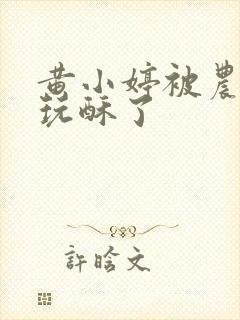 黄小婷被農
玩酥了
許晗文